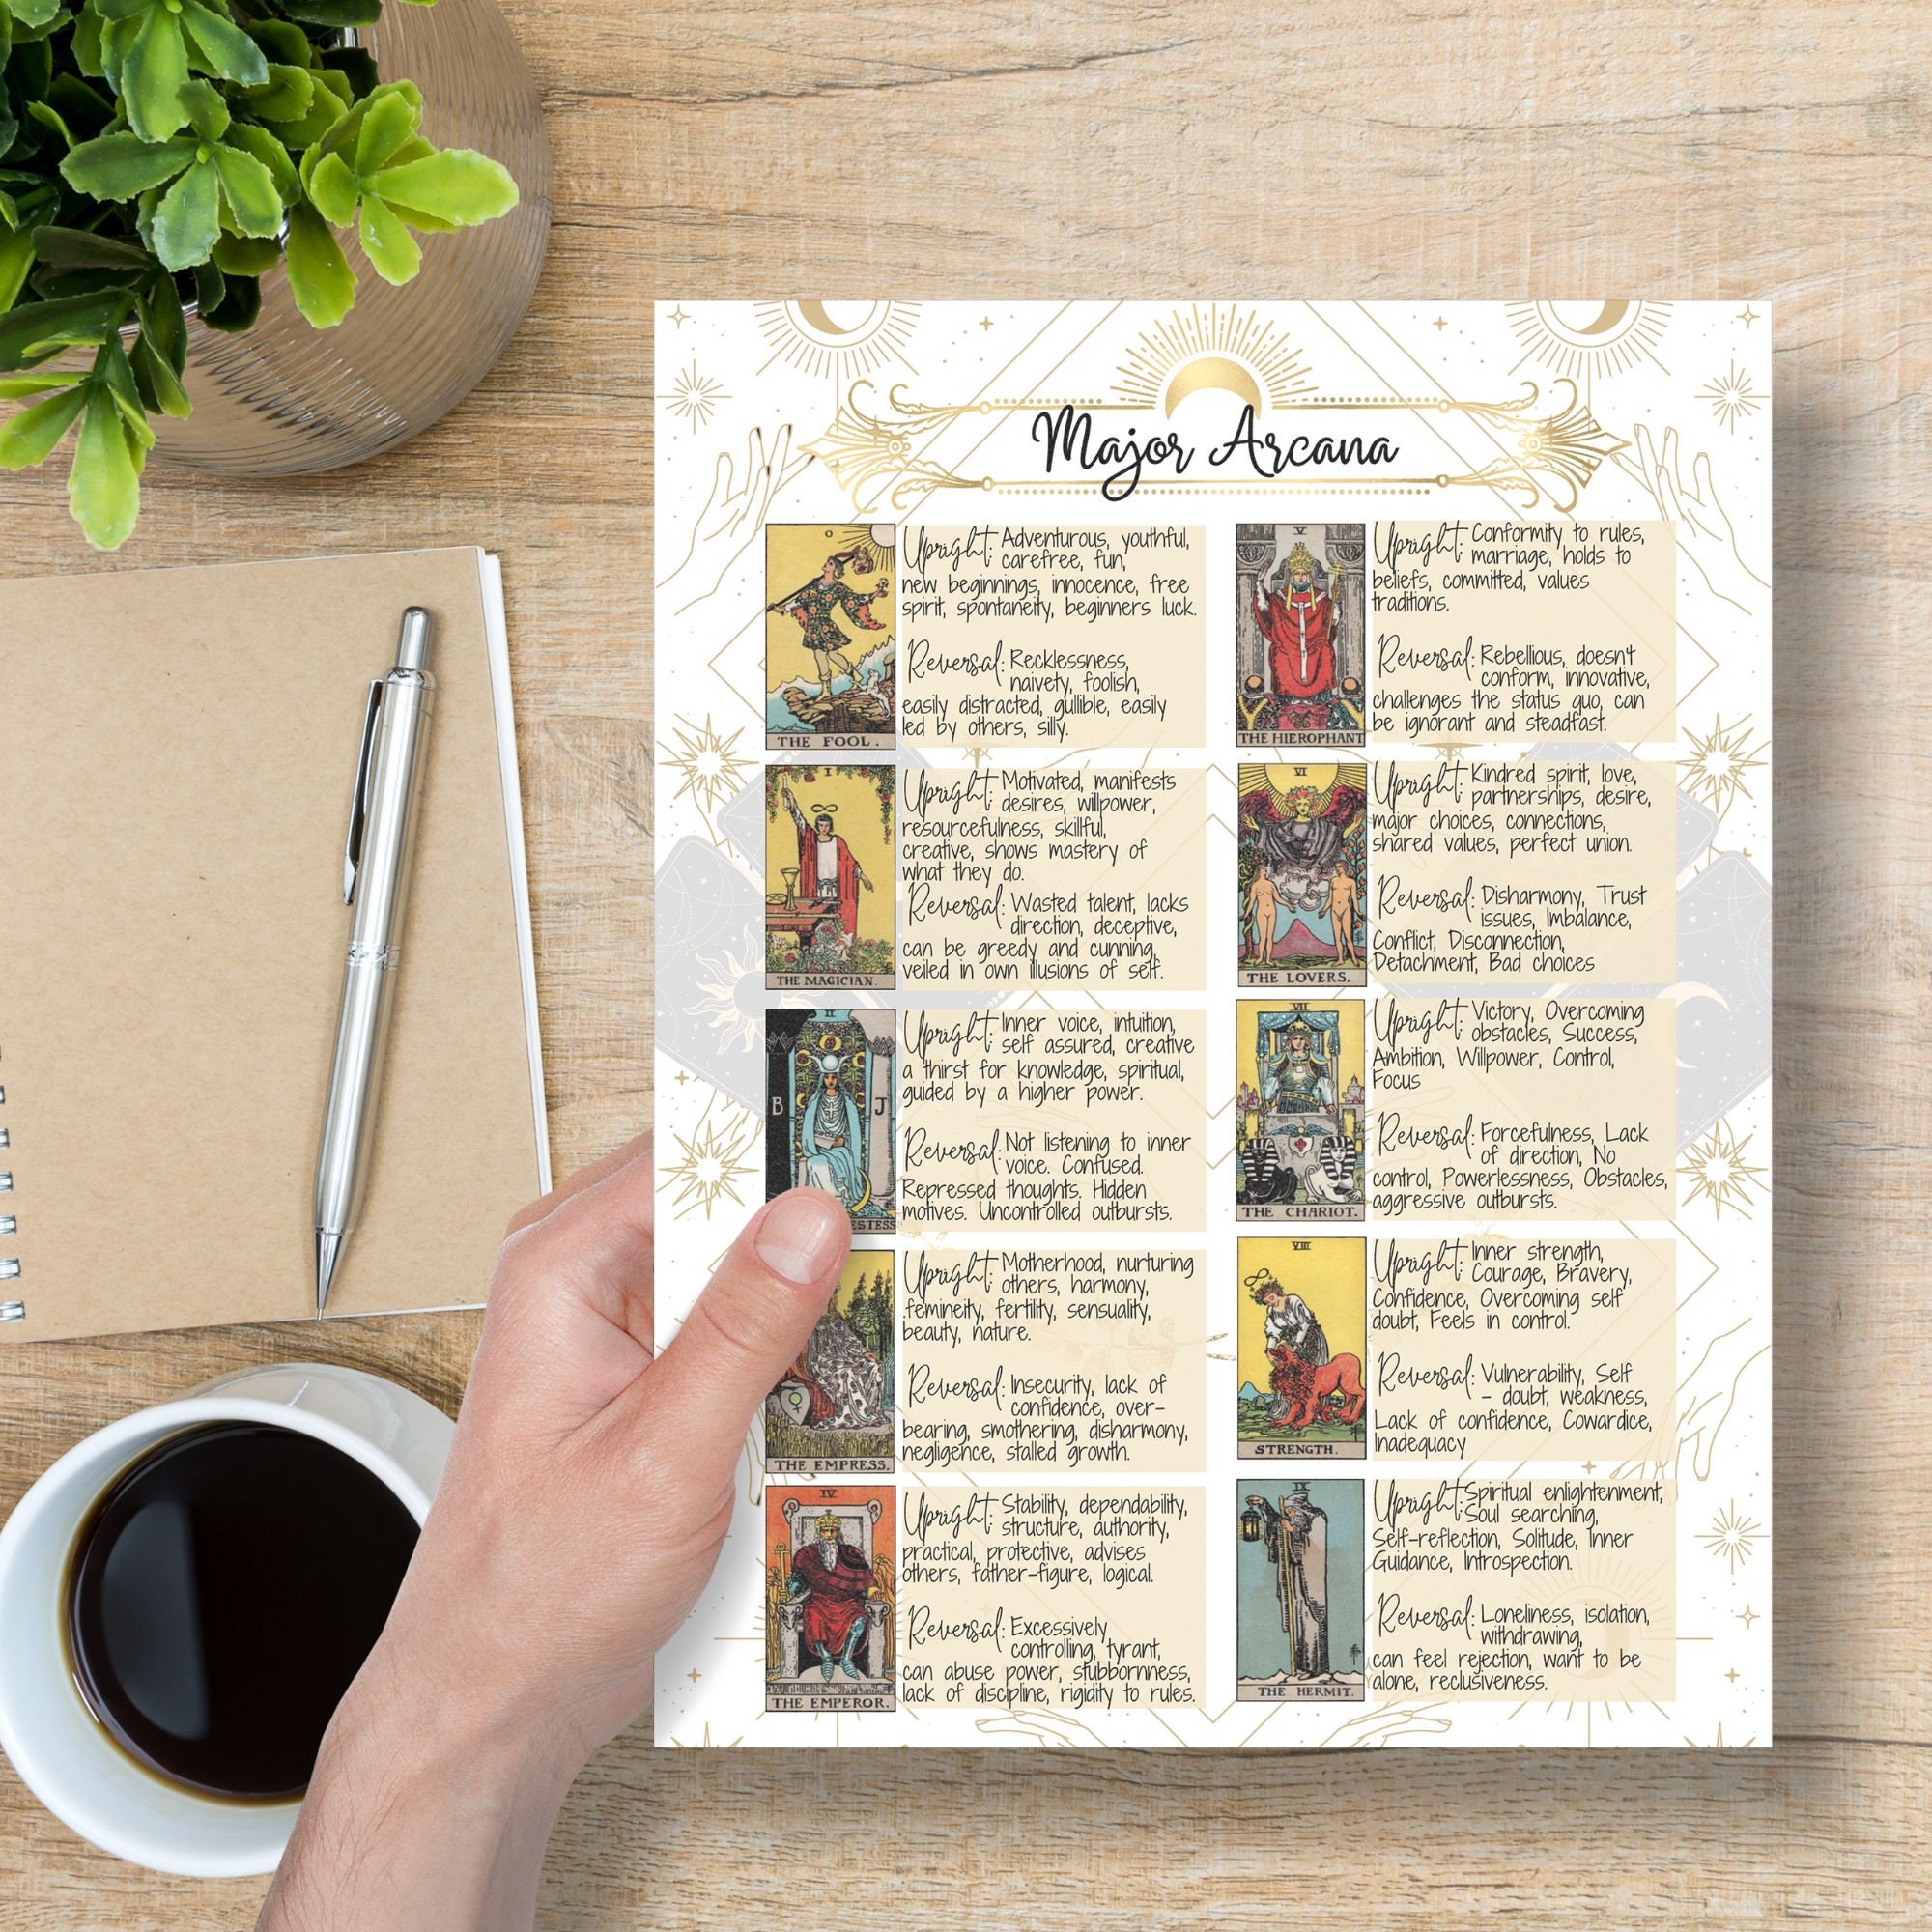 Major Arcana
0
THE FOOL.
Upright: Adventurous, youthful,
carefree, fun,
new beginnings, innocence, free
spirit, spontaneity, beginners luck.
Reversal: Recklessness,
naivety, foolish,
easily distracted, gullible, easily
led by others, silly.
I
THE MAGICIAN.
Upright: Motivated, manifests
desires, willpower,
resourcefulness, skillful,
creative, shows mastery of
what they do.
Reversal: Wasted talent, lacks
direction, deceptive,
can be greedy and cunning,
veiled in own illusions of self.
II
B J
ESTESS
Upright: Inner voice, intuition,
self assured, creative
a thirst for knowledge, spiritual,
guided by a higher power.
Reversal: Not listening to inner
voice. Confused.
Repressed thoughts. Hidden
motives. Uncontrolled outbursts.
THE EMPRESS.
Upright: Motherhood, nurturing
others, harmony,
.femineity, fertility, sensuality,
beauty, nature.
Reversal: Insecurity, lack of
confidence, over-
bearing, smothering, disharmony,
negligence, stalled growth.
IV
THE EMPEROR.
Upright: Stability, dependability,
structure, authority,
practical, protective, advises
others, father-figure, logical.
Reversal: Excessively
controlling, tyrant,
can abuse power, stubbornness,
lack of discipline, rigidity to rules.
V
THE HIEROPHANT
Upright: Conformity to rules,
marriage, holds to
beliefs, committed, values
traditions.
Reversal: Rebellious, doesn't
conform, innovative,
challenges the status quo, can
be ignorant and steadfast.
VI
THE LOVERS.
Upright: Kindred spirit, love,
partnerships, desire,
major choices, connections,
shared values, perfect union.
Reversal: Disharmony, Trust
issues, Imbalance,
Conflict, Disconnection,
Detachment, Bad choices
VII
THE CHARIOT.
Upright: Victory, Overcoming
obstacles, Success,
Ambition, Willpower, Control,
Focus
Reversal: Forcefulness, Lack
of direction, No
control, Powerlessness, Obstacles,
aggressive outbursts.
VIII
STRENGTH.
Upright: Inner strength,
Courage, Bravery,
Confidence, Overcoming self
doubt, Feels in control.
Reversal: Vulnerability, Self
- doubt, weakness,
Lack of confidence, Cowardice,
Inadequacy
IX
THE HERMIT.
Upright: Spiritual enlightenment,
Soul searching,
Self-reflection, Solitude, Inner
Guidance, Introspection.
Reversal: Loneliness, isolation,
withdrawing,
can feel rejection, want to be
alone, reclusiveness.